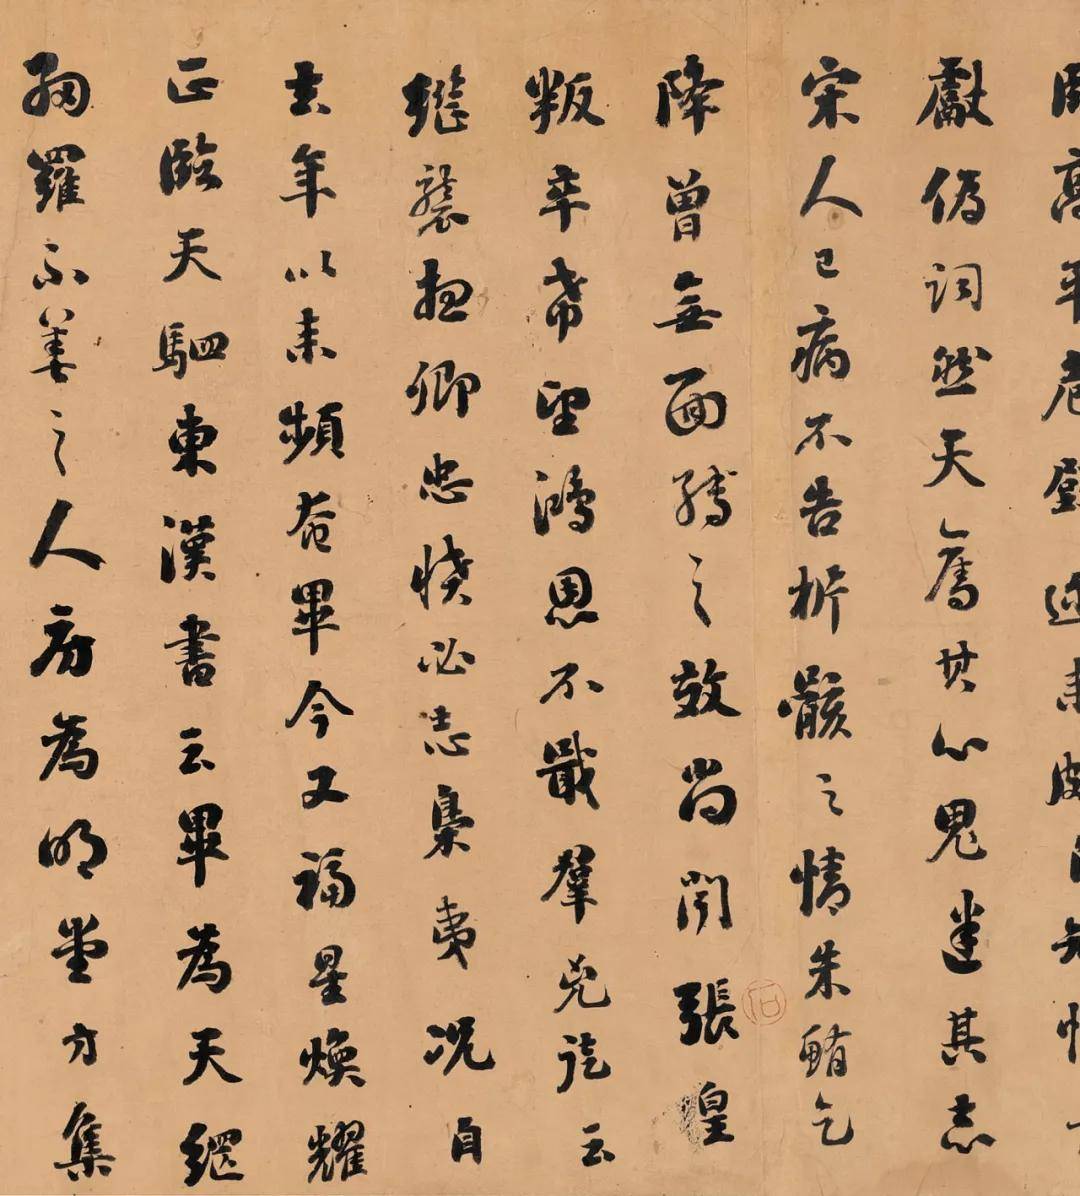 高平
獻偽詞然天奪其心鬼迷其志
宋人已病不告析骸之情朱鮪乞
降曾無面縛之效尚聞張皇
叛卒希望鴻恩不戢群兇詎云
繼襲想卿忠憤必志梟夷況自
去年以来頻奄畢今又福星煥耀
正臨天駟東漢書云畢為天網
網羅不善之人房為明堂方集